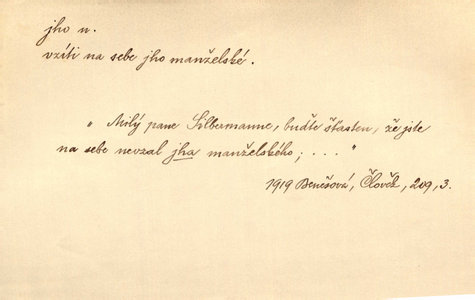 jho n.
vzíti na sebe jho manželské.
„Milý pane Silbermanne, buďte šťasten, že jste
na sebe nevzal jha manželského; . . . "
1919 Benešová, Člověk, 209, 3.